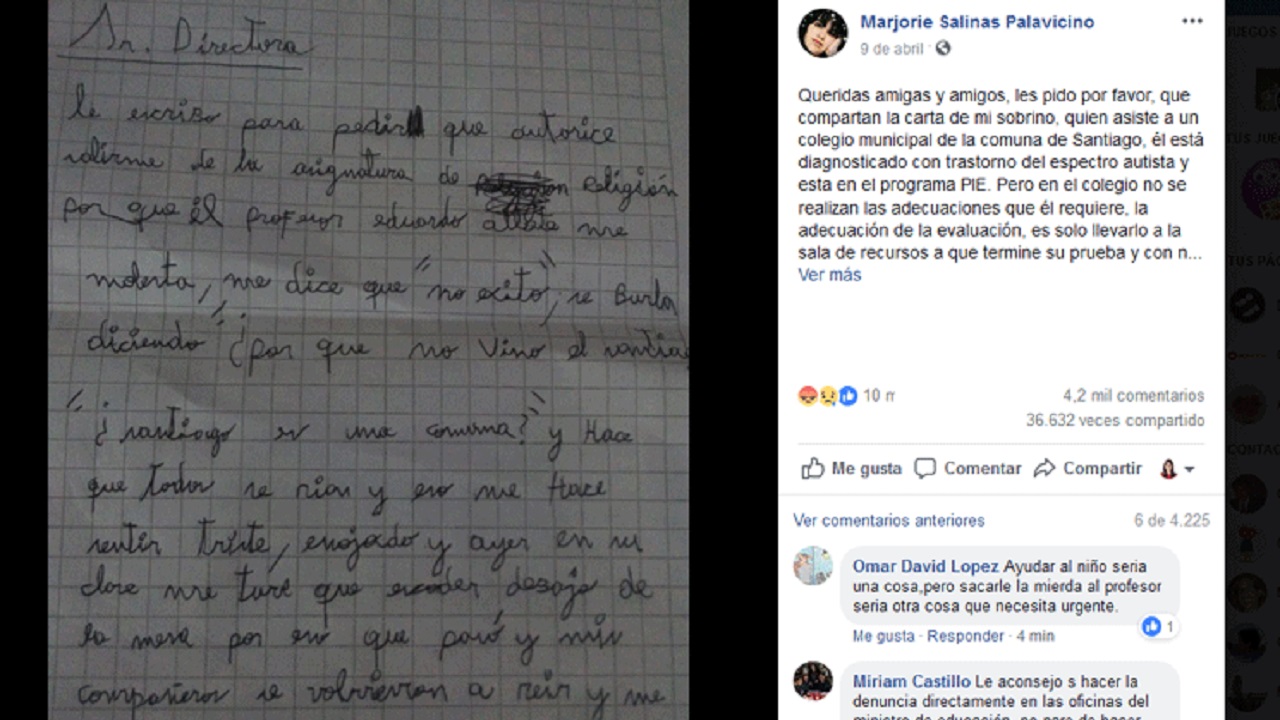 Sr. Directora
le escribo para pedir que autorice
salirme de la asignatura de Religión
por que él profesor eduardo me
molesta, me dice que "no exito", se Burla
diciendo "¿por que no Vino el santia
"¿santiago es una comuna?" y Hace
que todos se rian y eso me Hace
sentir triste, enojado y ayer en su
clase me tuve que esconder desajo de
la mesa por eso que pasó y mis
compañeros se volvieron a reir y me
Marjorie Salinas Palavicino
9 de abril
Queridas amigas y amigos, les pido por favor, que
compartan la carta de mi sobrino, quien asiste a un
colegio municipal de la comuna de Santiago, él está
diagnosticado con trastorno del espectro autista y
esta en el programa PIE. Pero en el colegio no se
realizan las adecuaciones que él requiere, la
adecuación de la evaluación, es solo llevarlo a la
sala de recursos a que termine su prueba y con n...
Ver más
10 m
4,2 mil comentarios
36.632 veces compartido
Me gusta Comentar Compartir
Ver comentarios anteriores 6 de 4.225
Omar David Lopez Ayudar al niño seria
una cosa,pero sacarle la mierda al profesor
seria otra cosa que necesita urgente.
Me gusta · Responder · 4 min
1
Miriam Castillo Le aconsejo s hacer la
denuncia directamente en las oficinas del
ministro de educación, no para de hacer
JUEGOS
TUS JUE
TUS PÁG
CONTAC